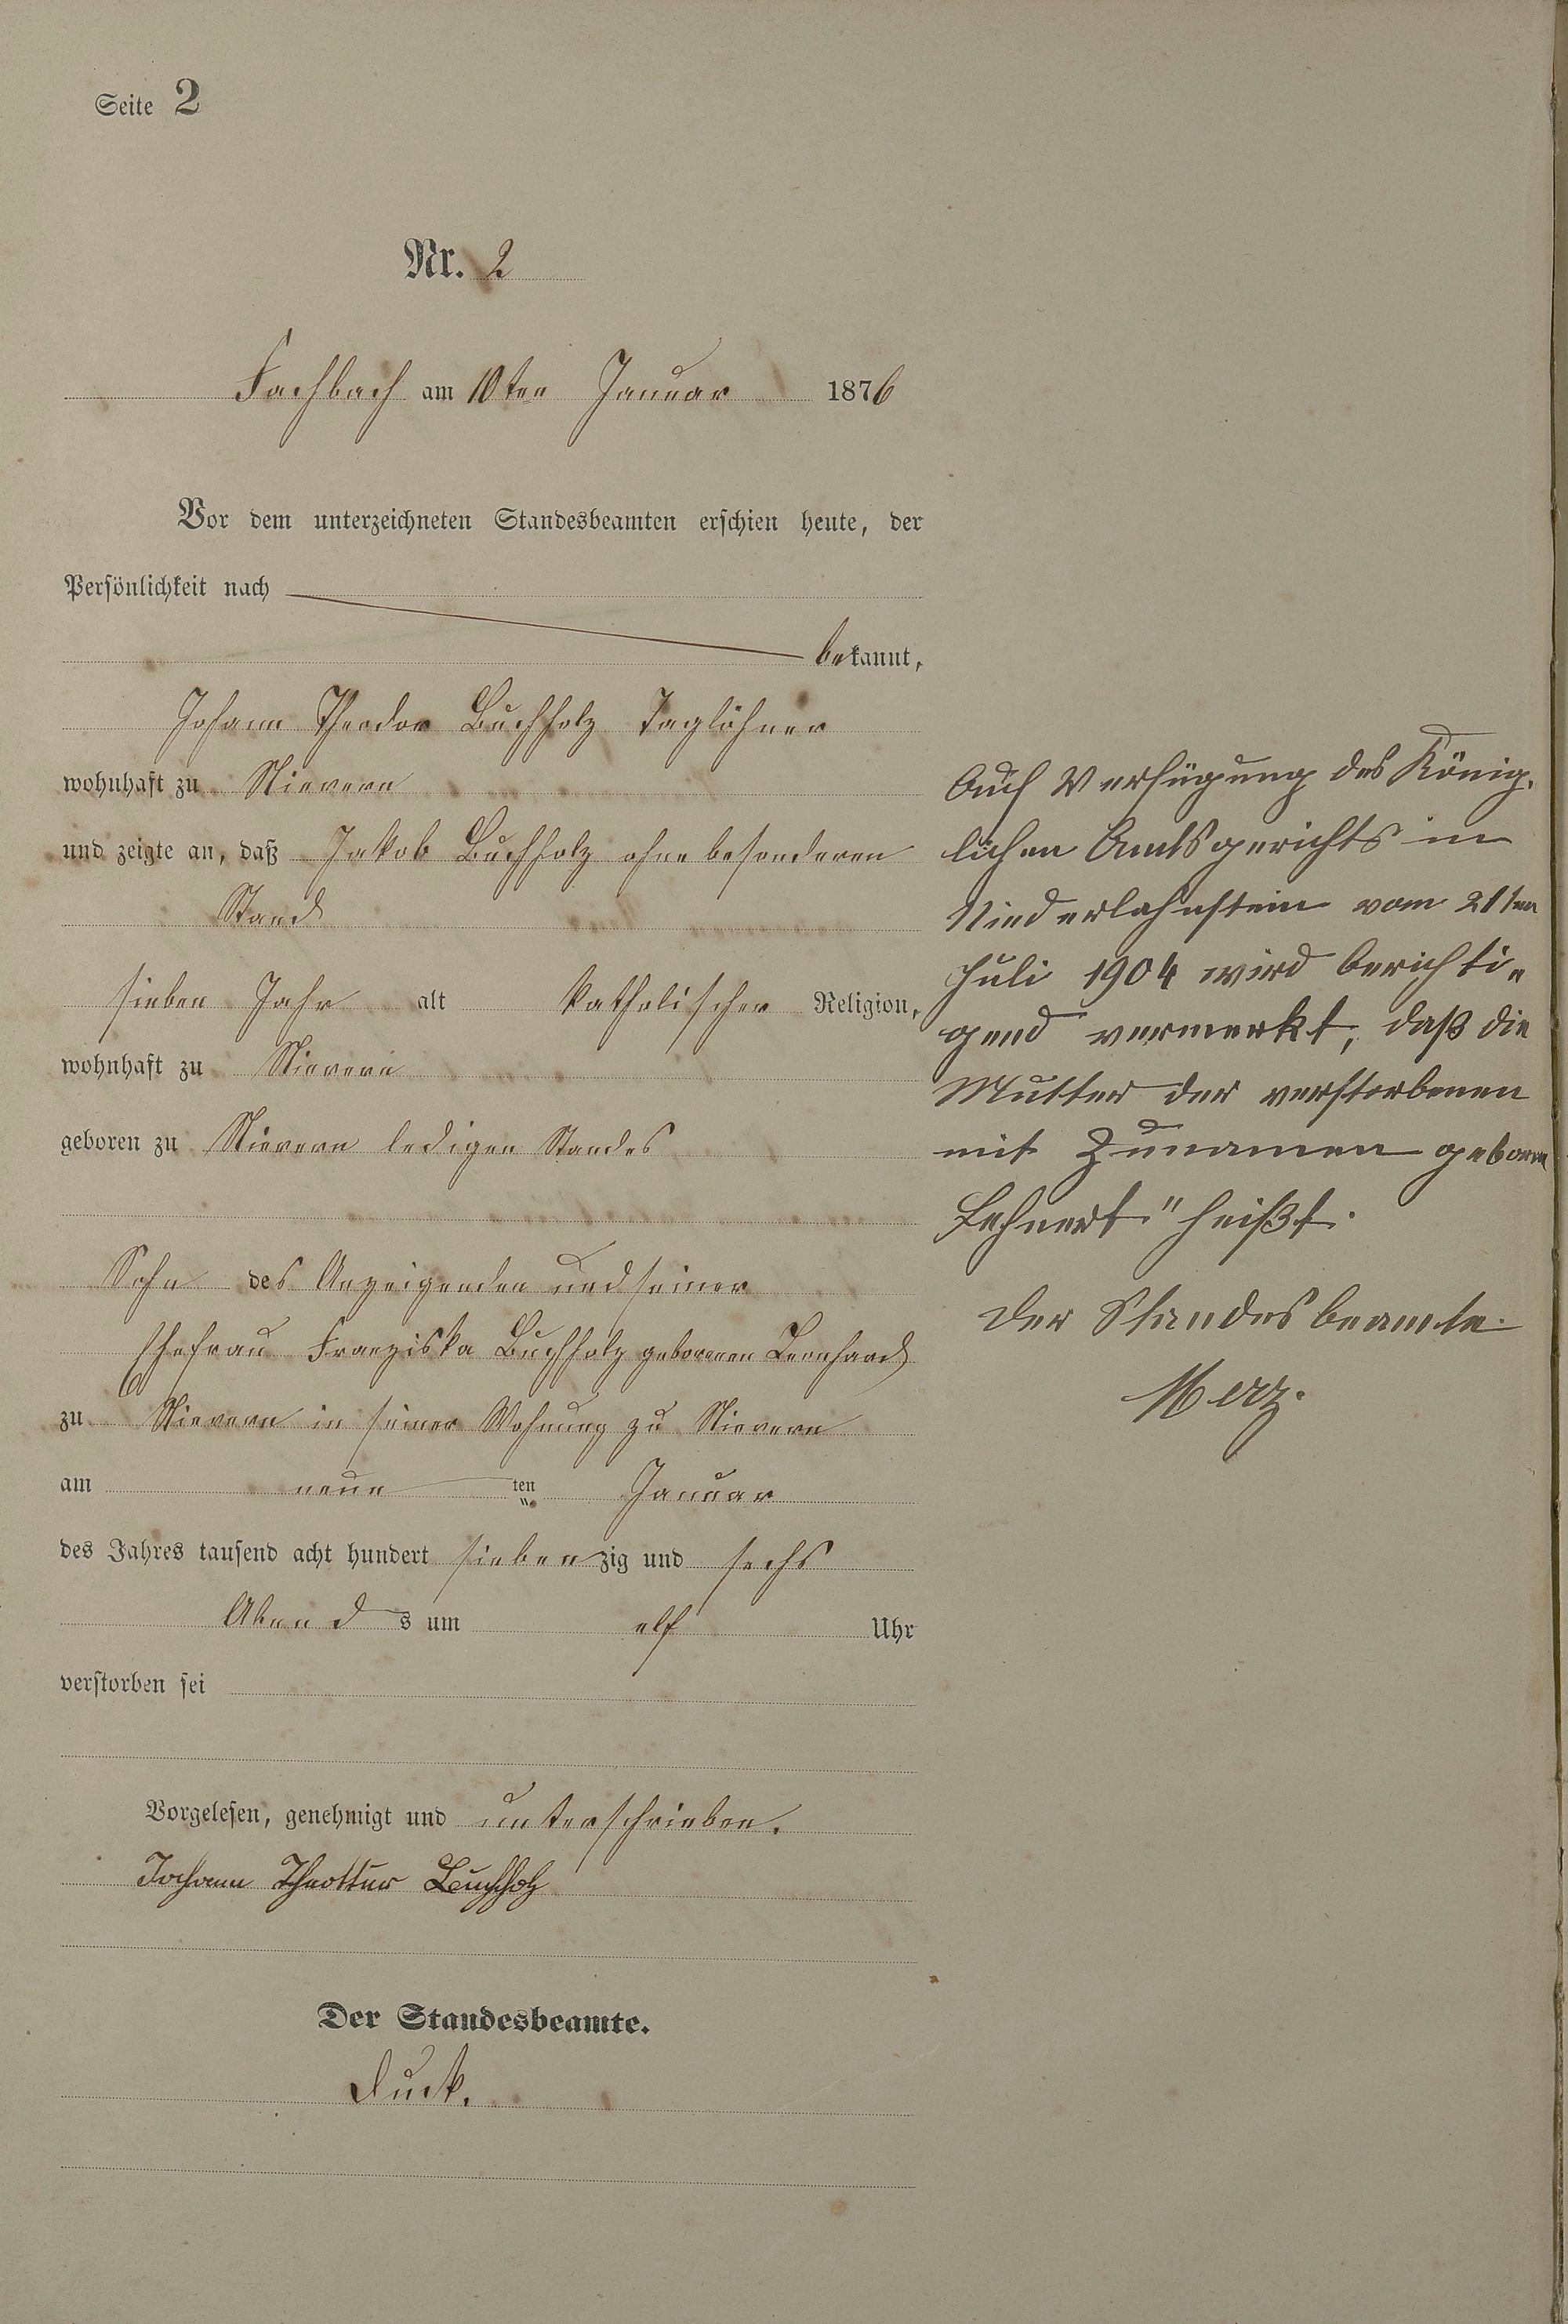 Seite 2
Nr. 2
Fachbach am 10ten Januar 1876
Vor dem unterzeichneten Standesbeamten erschien heute, der
Persönlichkeit nach
bekannt,
Johann Theodor Buchholz Taglöhner
wohnhaft zu Nievern
und zeigte an, daß Jakob Buchholz ohne besonderen
Stand
sieben Jahr alt katholischer Religion,
wohnhaft zu Nievern
geboren zu Nievern ledigen Standes
Sohn des Anzeigenden und seiner
Ehefrau Franziska Buchholz geborenen Leonhard
zu Nievern in seiner Wohnung zu Nievern
am neun ten Januar
des Jahres tausend acht hundert siebenzig und sechs
Abends um elf Uhr
verstorben sei
Vorgelesen, genehmigt und unterschrieben.
Johann Theottur Buchholz
Der Standesbeamte.
Duck.
Auf Verfügung des König-
lichen Amtsgerichts in
Niederlahnstein vom 21ten
Juli 1904 wird berichti-
gend vermerkt, daß die
Mutter der verstorbenen
mit Zunamen geboren
Lehnert" heißt.
Der Standesbeamte.
Merz.